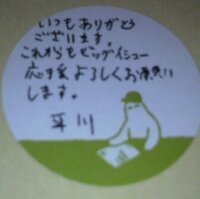 いつもありがとう
ございます。
これからもビッグイシュー
応援よろしくお願い
します。
平川